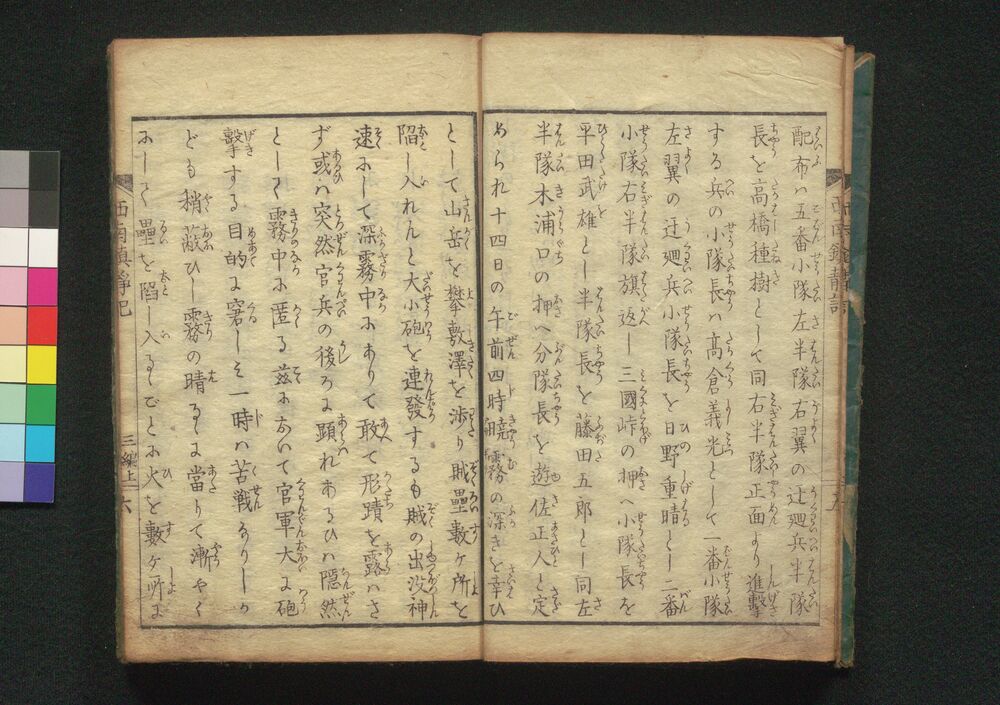 配布ハ五番小隊左半隊右翼の迂廻兵半隊
長を高橋種樹として同右半隊正面より進撃
する兵の小隊長ハ高倉義光として一番小隊
左翼の迂廻兵小隊長を日野重晴とし二番
小隊右半隊旗返し三國峠の押へ小隊長を
平田武雄とし半隊長を藤田五郎とし同左
半隊木浦口の押へ分隊長を遊佐正人と定
められ十四日の午前四時暁霧の深きを幸ひ
として山岳を攀敷澤を渉り賊壘数ヶ所を
陥し入れんと大小砲を連發するも賊の出没神
速にして深霧中にありて敢て形蹟を露ハさ
ず或ハ突然官兵の後ろに顕れあるひハ隠然
として霧中に匿る茲において官軍大に砲
撃する目的に窘しミ一時ハ苦戦なりしか
ども稍蔽ひし霧の晴るに當りて漸やく
にして壘を陥し入るゝごとに火を数ヶ所に
西南鎮静記
三編上
六